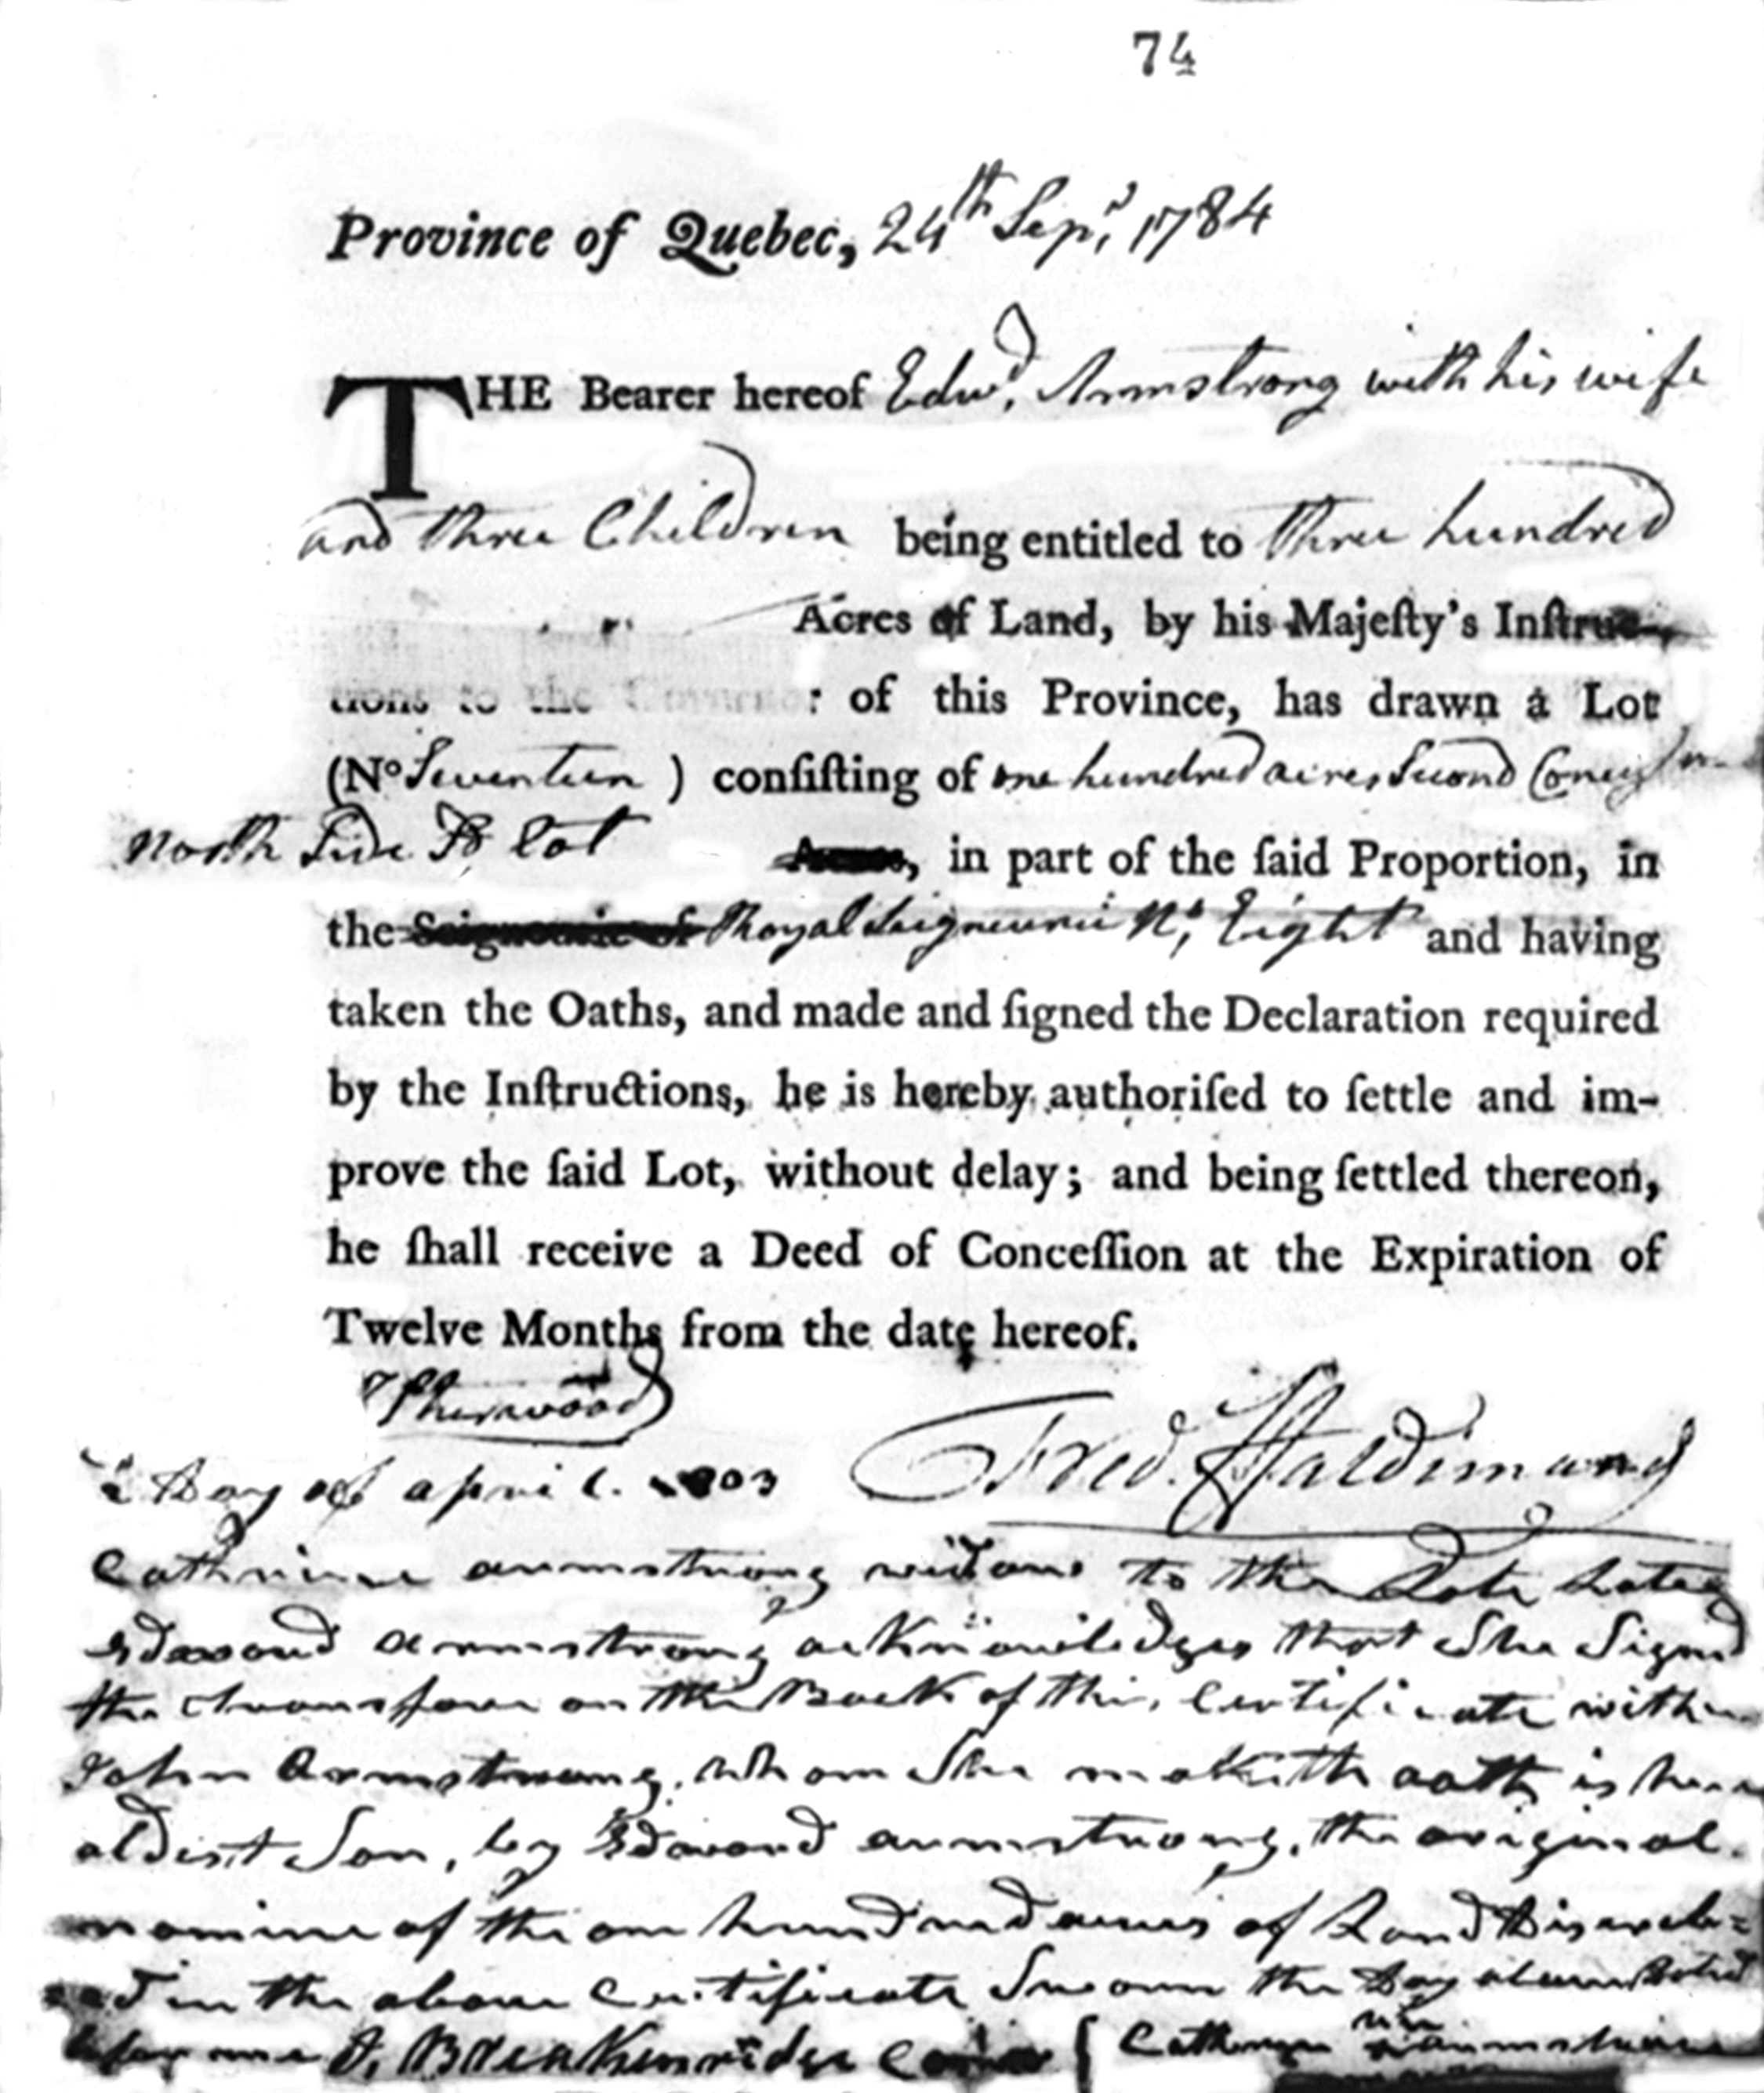 74
Province of Quebec, 24th Sepr, 1784
THE Bearer hereof Edwd, Armstrong with his wife
and three Children being entitled to Three hundred
Acres of Land, by his Majeſty's Inſtruc-
tions to the Governor of this Province, has drawn a Lot
(No Seventeen ) conſiſting of one hundred acres Second
North Side Lot Acres, in part of the ſaid Proportion, in
the Seigneurie of Royal Seigneurie No, Eight and having
taken the Oaths, and made and ſigned the Declaration required
by the Inſtructions, he is hereby authoriſed to ſettle and im-
prove the ſaid Lot, without delay; and being ſettled thereon,
he ſhall receive a Deed of Conceſſion at the Expiration of
Twelve Months from the date hereof.
Sherwood
Fred. Haldimand
Day of april. 1803
Cathrine armstrong widow to the Late
Edward armstrong acknowledges that She Signd
the transfer on the Back of this, Certificate with
John Armstrong. whom She maketh oath is her
aldest Son, by Edward armstrong, the original
nomine of the one hundred acres of Land
in the above Certificate Sworn the Day above
before me J, Breakenridge